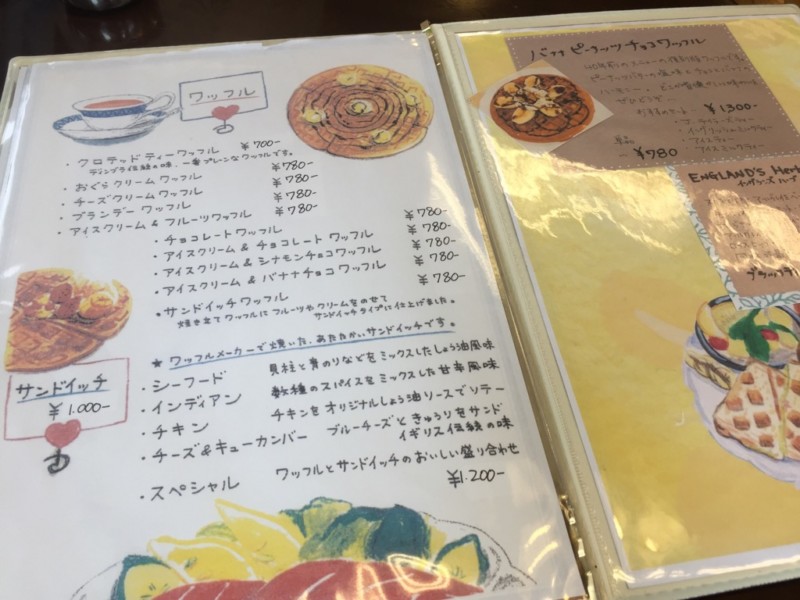 ワッフル
・クロテッドティーワッフル ¥700-
ディンブラ伝統の味、一番プレーンなワッフルです。
・おぐらクリームワッフル ¥780-
・チーズクリームワッフル ¥780-
・ブランデーワッフル ¥780-
・アイスクリーム&フルーツワッフル ¥780-
・チョコレートワッフル ¥780-
・アイスクリーム&チョコレートワッフル ¥780-
・アイスクリーム&シナモンチョコワッフル ¥780-
・アイスクリーム&バナナチョコワッフル ¥780-
・サンドイッチワッフル ¥780-
焼き立てワッフルにフルーツやクリームをのせて
サンドイッチタイプに仕上げました。
★ワッフルメーカーで焼いた、あたたかいサンドイッチです。
サンドイッチ
¥1.000-
・シーフード 貝柱と青のりなどをミックスしたしょう油風味
・インディアン 数種のスパイスをミックスした甘辛風味
・チキン チキンをオリジナルしょう油ソースでソテー
・チーズ&キューカンバー ブルーチーズときゅうりをサンド
イギリス伝統の味
・スペシャル ワッフルとサンドイッチのおいしい盛り合わせ
¥1.200-
バナナピーナッツチョコワッフル
ぜひどうぞ
¥1300-
・アイスティー
・アイスミルクティー
単品
¥780
ENGLAND'S Her